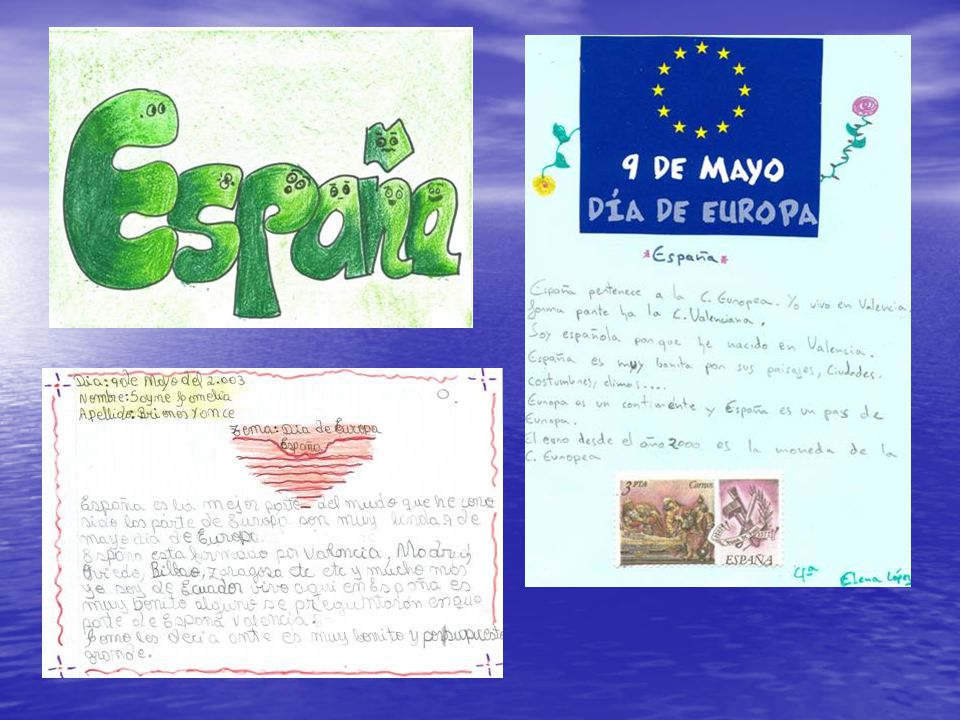 España
Dia: 9 de Mayo del 2.003
Nombre: Sayne Gomelia
Apellido: Briones Yonce
Tema: Dia de Europa
España
España es la mejor parte del mudo que he cono
sido las parte de Europa son muy lindas 9 de
mayo dia de Europa.
España esta formado por Valencia, Madrid,
Oviedo, Bilbao, Zaragosa etc etc y mucho mas
yo soy de Ecuador vivo aqui en España es
muy bonito alguno se preguntaran en que
parte de España Valencia.
Como les decia ante es muy bonito y por supuesto
grande.
9 DE MAYO
DÍA DE EUROPA
*España*
España pertenece a la C. Europea. Yo vivo en Valencia,
forma parte ha la C. Valenciana.
Soy española porque he nacido en Valencia.
España es muy bonita por sus paisajes, ciudades,
costumbres, climas....
Europa es un continente y España es un país de
Europa.
El euro desde el año 2000 es la moneda de la
C. Europea
3 PTA Correos
ESPAÑA
4ª Elena López